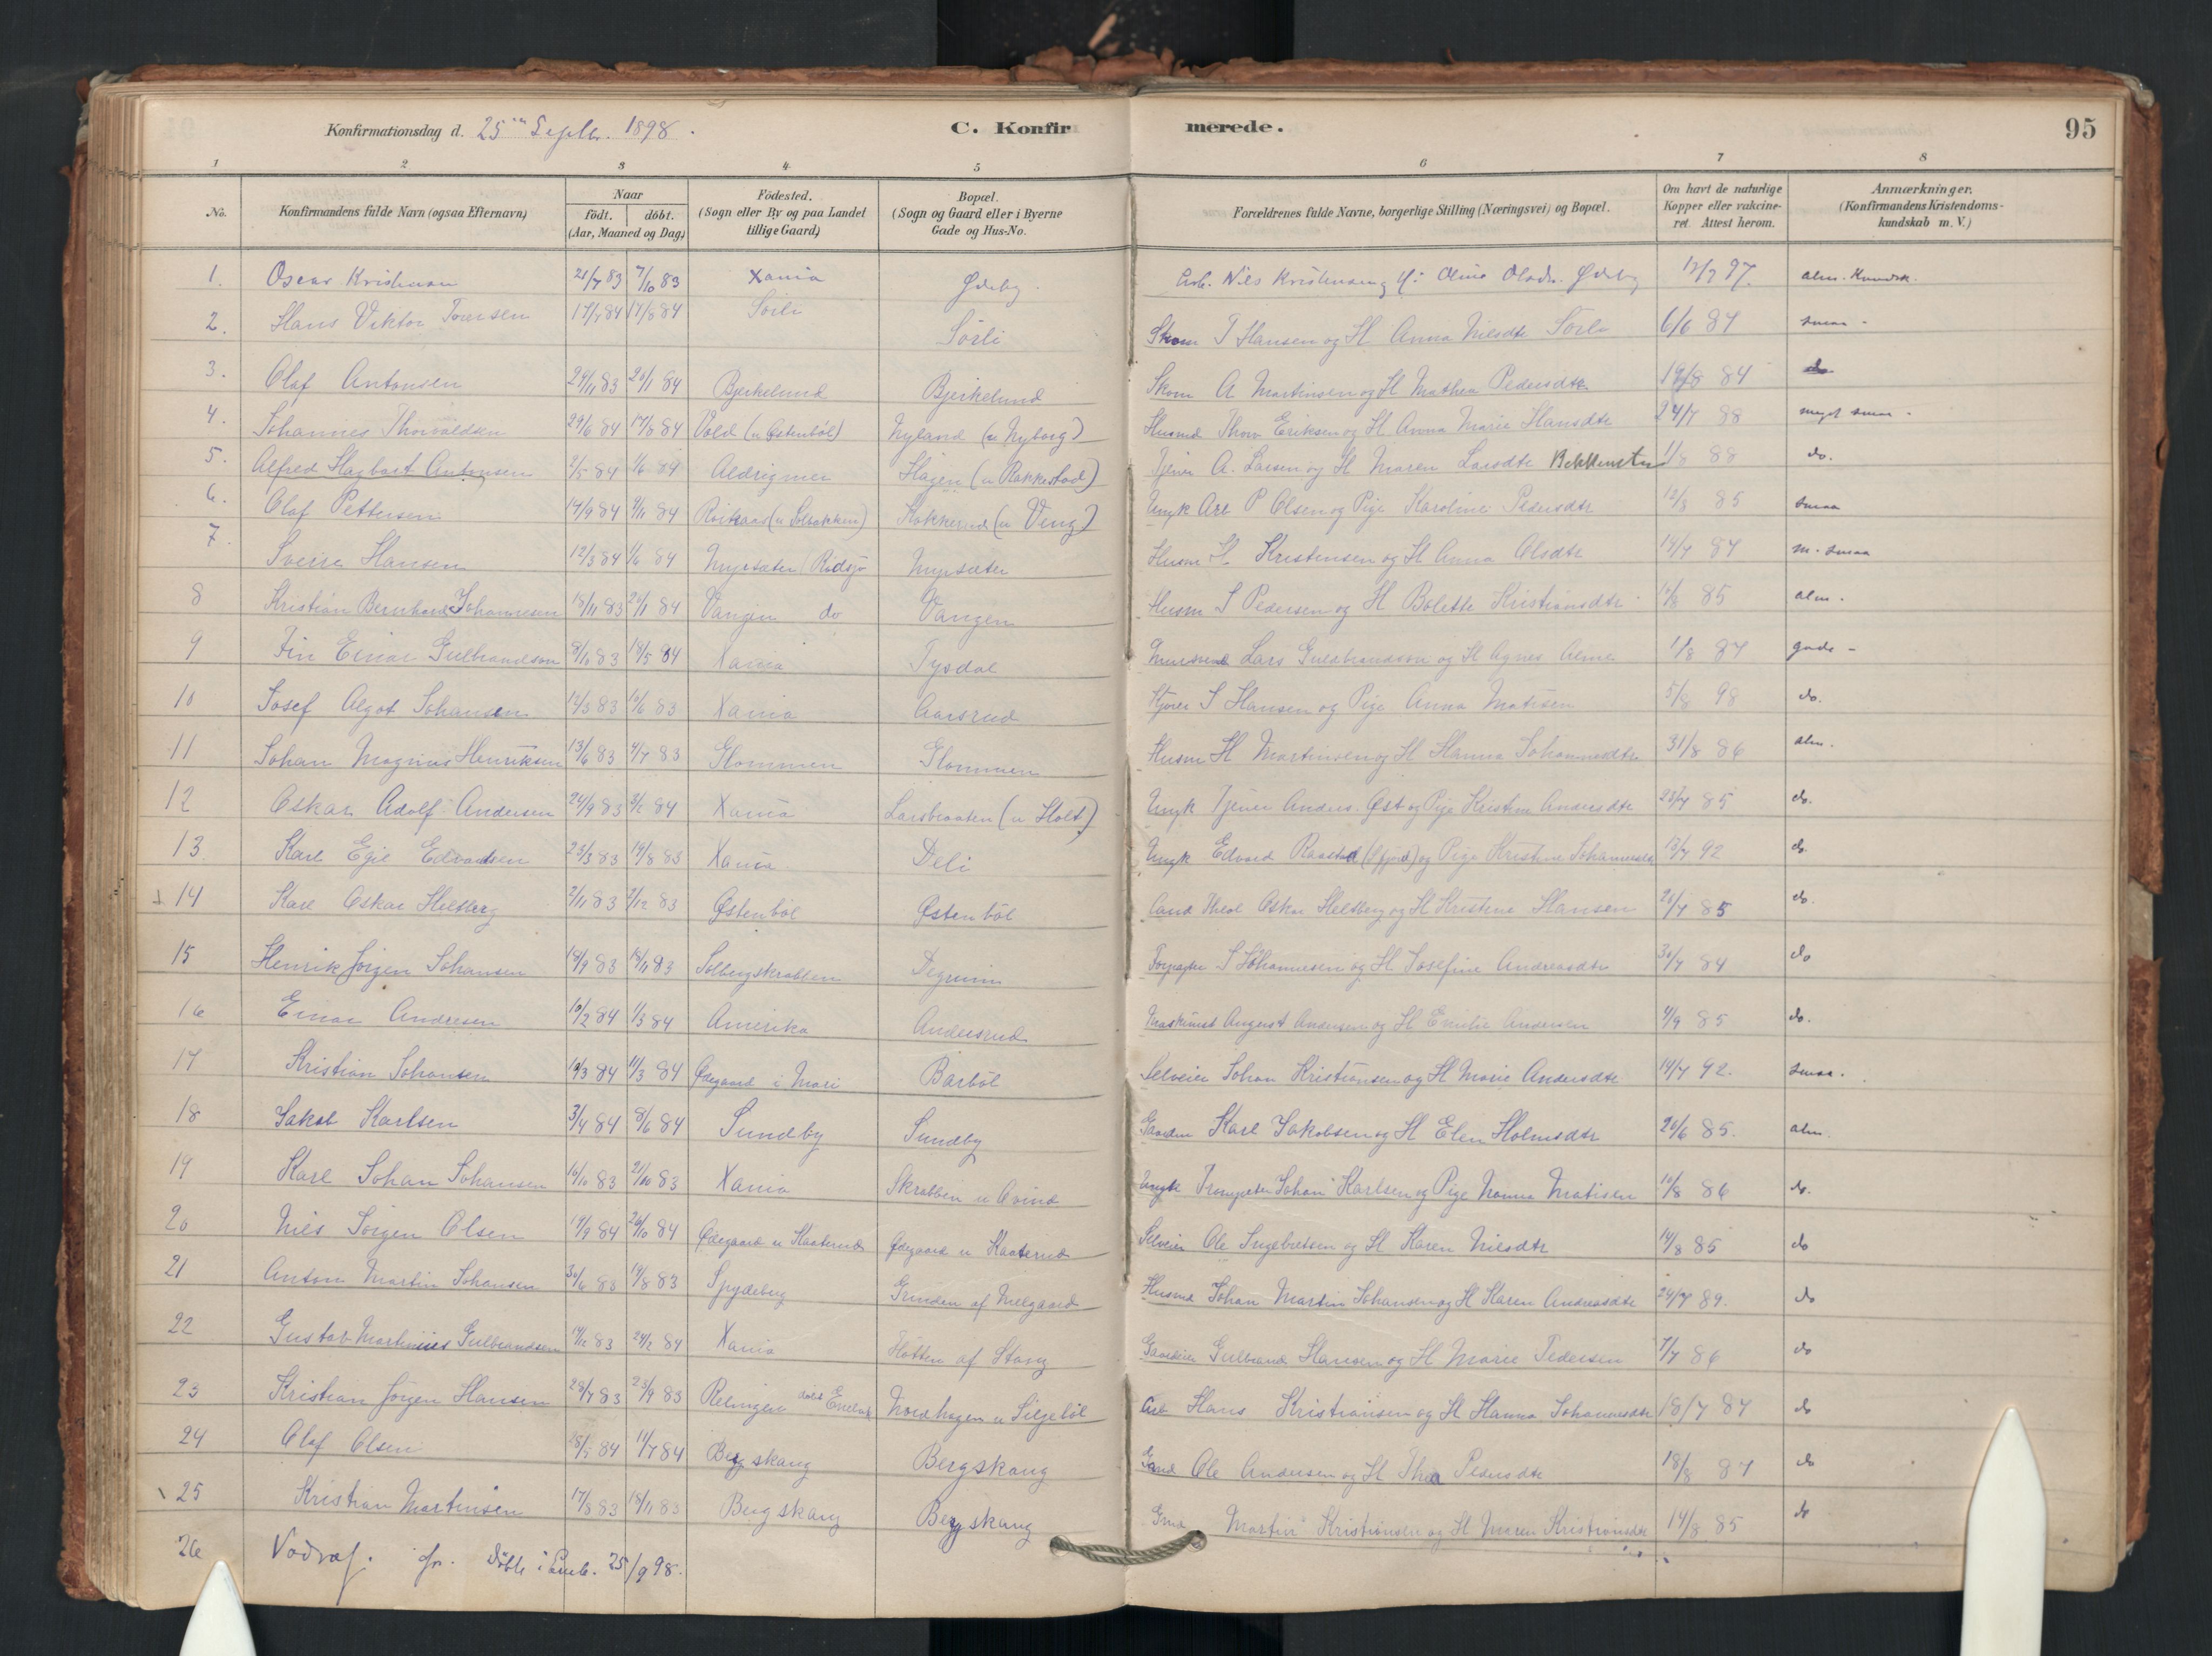 Konfirmationsdag d. 25 Septbr. 1898. C. Konfirmerede. 95
1 2 3 4 5 6 7 8
No. Konfirmandens fulde Navn (ogsaa Efternavn) Naar födt. döbt. (Aar, Maaned og Dag) Födested. (Sogn eller By og paa Landet tillige Gaard) Bopæl. (Sogn og Gaard eller i Byerne Gade og Hus-No. Forældrenes fulde Navne, borgerlige Stilling (Næringsvei) og Bopæl. Om havt de naturlige Kopper eller vakcineret. Attest herom. Anmærkninger. (Konfirmandens Kristendomskundskab m. V.)
1. Oscar Kristensen 21/7 83 7/10 83 Xania Ødeby Arb. Nils Kristensen og H: Oline Olsdr. Ødeby 12/7 97. alm. Kundsk.
2. Hans Viktor 84 17/8 84 Sörli Sörli Skom T Hansen og H Anna Nilsdtr Sörli 6/6 87 smaa -
3. Olaf Antonsen 29/11 83 20/1 84 Bjerkelund Bjerkelund Skom A Martinsen og H Mathea Pedersdtr 19/8 84 do
4. Johannes Thorvaldsen 29/6 84 17/8 84 Vold (u Østenböl) Nyland (u Nyborg) Husmd Thorv Eriksen og H Anna Marie Hansdtr 24/7 88 meget smaa -
5. Alfred Hagbart Antonsen 2/5 84 1/6 84 Aldrigmer Hagen (u Rakkestad) Tjener A. Larsen og H Maren Larsdtr 1/8 88 do.
6. Olaf Pettersen 14/9 84 9/11 84 (u Solbakken) Kokkerud (u Veng) Ungk Arb P Olsen og Pige Karoline Pedersdtr 12/8 85 smaa
7. Sverre Hansen 12/3 84 1/6 84 Myrsæter Rødsjø Myrsæter Husm H Kristensen og H Anna Olsdtr 14/7 87 m. smaa
8 Kristian Bernhard Johannesen 18/11 83 20/1 84 Vangen do Vangen Husm J Pedersen og H Bolette Kristiansdtr 85 alm.
9 Fin Einar Gulbrandsen 8/10 83 18/5 84 Xania Tysdal Lars Guldbrandsen og H Agnes 1/8 87 gode -
10 Josef Algot Johansen 12/3 83 10/6 83 Xania Aarsrud J Hansen og Pige Anna Matisen 5/8 98 do.
11 Johan Magnus Henriksen 13/6 83 4/7 83 Glommen Glommen Husm H Martinsen og H Hanna Johannesdtr 31/8 86 alm.
12 Oskar Adolf Andersen 24/9 83 3/2 84 Xania Larsbraaten (u Holt) Ungk Tjener Anders Øst og Pige Kristine Andersdtr 25/7 85 do.
13 Karl Egil Edvardsen 25/3 83 19/8 83 Xania Deli Ungk Edvard Raastad og Pige Kristine Johannesdtr 13/7 92 do.
14 Karl Oskar Helberg 2/11 83 2/12 83 Østenböl Østenböl Cand Theol Oskar Helberg og H Kristine Hansen 21/7 85 do.
15 Henrik Jörgen Johansen 14/9 83 18/11 83 Solbergskrabben Degrum J Johannesen og H Josefine Andreasdtr 30/7 84 do
16 Einar Andresen 10/2 84 1/3 84 Amerika Andersrud Maskinist August Andersen og H Emilie Andersen 4/9 85 do.
17 Kristian Johansen 10/3 84 11/3 84 Ødegaard i Mari Barböl Selveier Johan Kristiansen og H Marie Andersdtr 14/7 92. smaa.
18 Jakob Karlsen 3/4 84 8/6 84 Sundby Sundby Gaardm Karl Jakobsen og H Elen Holmsdtr 26/6 85. alm.
19 Karl Johan Johansen 16/10 83 21/10 83 Xania Skrabben u Ovind Ungk Trompeter Johan Karlsen og Pige Hanna Matisen 11/8 86 do.
20 Nils Jörgen Olsen 19/9 84 26/10 84 Ødegaard u Kaaterud Ødegaard u Kaaterud Selveier Ole Ingebretsen og H Karen Nilsdtr 14/8 85 do
21 Anton Martin Johansen 30/6 83 19/8 83 Spydeberg Grinden af Melgaard Husmd Johan Martin Johansen og H Karen Andreasdtr 24/7 89. do
22 Gustav Martinius Gulbrandsen 14/12 83 24/2 84 Xania Hötten af Stang Gaardeier Gulbrand Hansen og H Marie Pedersen 7/7 86 do
23 Kristian Jörgen Hansen 28/7 83 23/9 83 Relingen döbt Enebak Nordhagen u Siljeböl Arb Hans Kristiansen og H Hanna Johannesdtr 18/7 87 do
24 Olaf Olsen 28/5 84 11/7 84 Bergskaug Bergskaug Gmd Ole Andersen og H Thea Pedersdtr 18/8 87 do
25 Kristian Martinsen 17/8 83 18/11 83 Bergskaug Bergskaug Gmd Martin Kristiansen og H Maren Kristiansdtr 14/8 85 do
26 Vadraf. fr. döbte i 25/9 98.